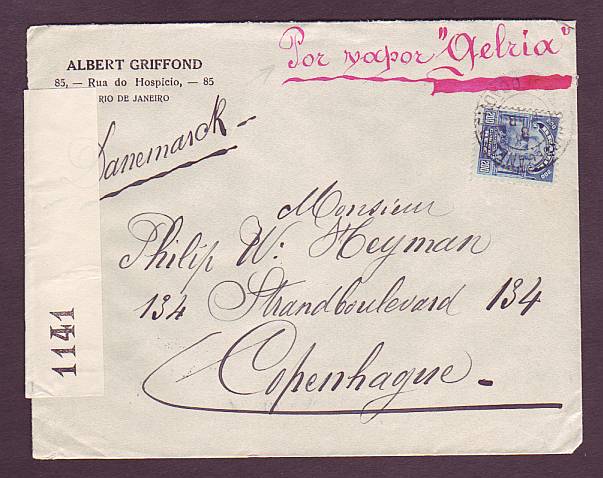 ALBERT GRIFFOND
85, — Rua do Hospicio, — 85
RIO DE JANEIRO
Por vapor "Gelria"
Danemarck -
Monsieur
Philip W. Heyman
134 Strandboulevard 134
Copenhague -
1141
200